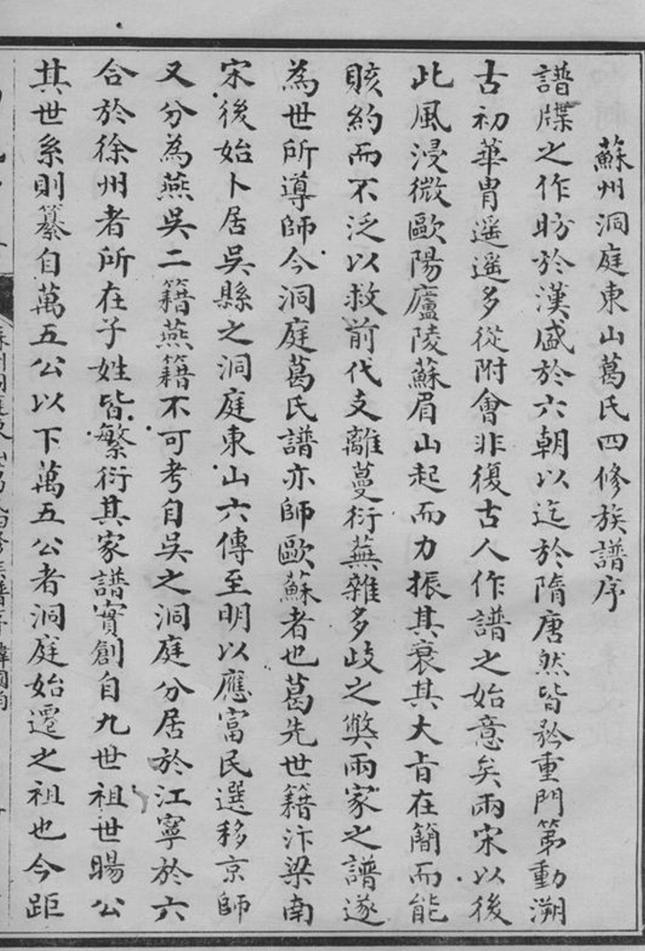 蘇州洞庭東山葛氏四修族譜序
譜牒之作昉於漢盛於六朝以迄於隋唐然皆矜重門第動溯
古初華胄遥遥多從附會非復古人作譜之始意矣兩宋以後
此風浸微歐陽廬陵蘇眉山起而力振其衰其大旨在簡而能
賅約而不泛以救前代支離蔓衍蕪雜多歧之獘兩家之譜遂
為世所導師今洞庭葛氏譜亦師歐蘇者也葛先世籍汴梁南
宋後始卜居吳縣之洞庭東山六傳至明以應富民選移京師
又分為燕吳二籍燕籍不可考自吳之洞庭分居於江寧於六
合於徐州者所在子姓皆繁衍其家譜實創自九世祖世暘公
其世系則纂自萬五公以下萬五公者洞庭始遷之祖也今距